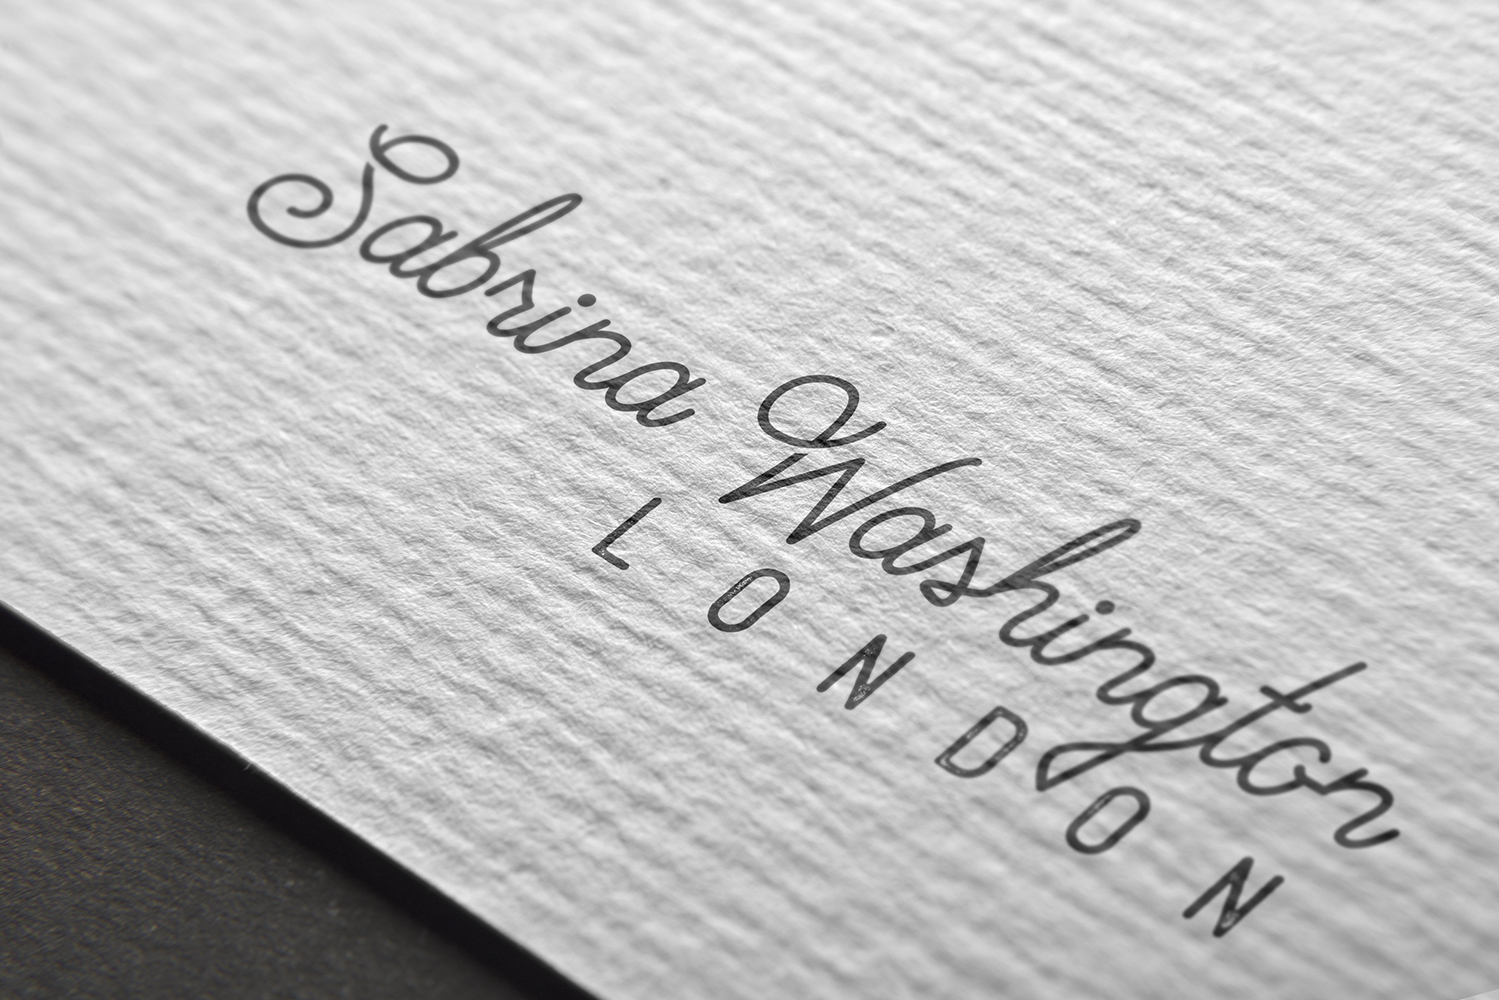 Sabrina Washington
LONDON